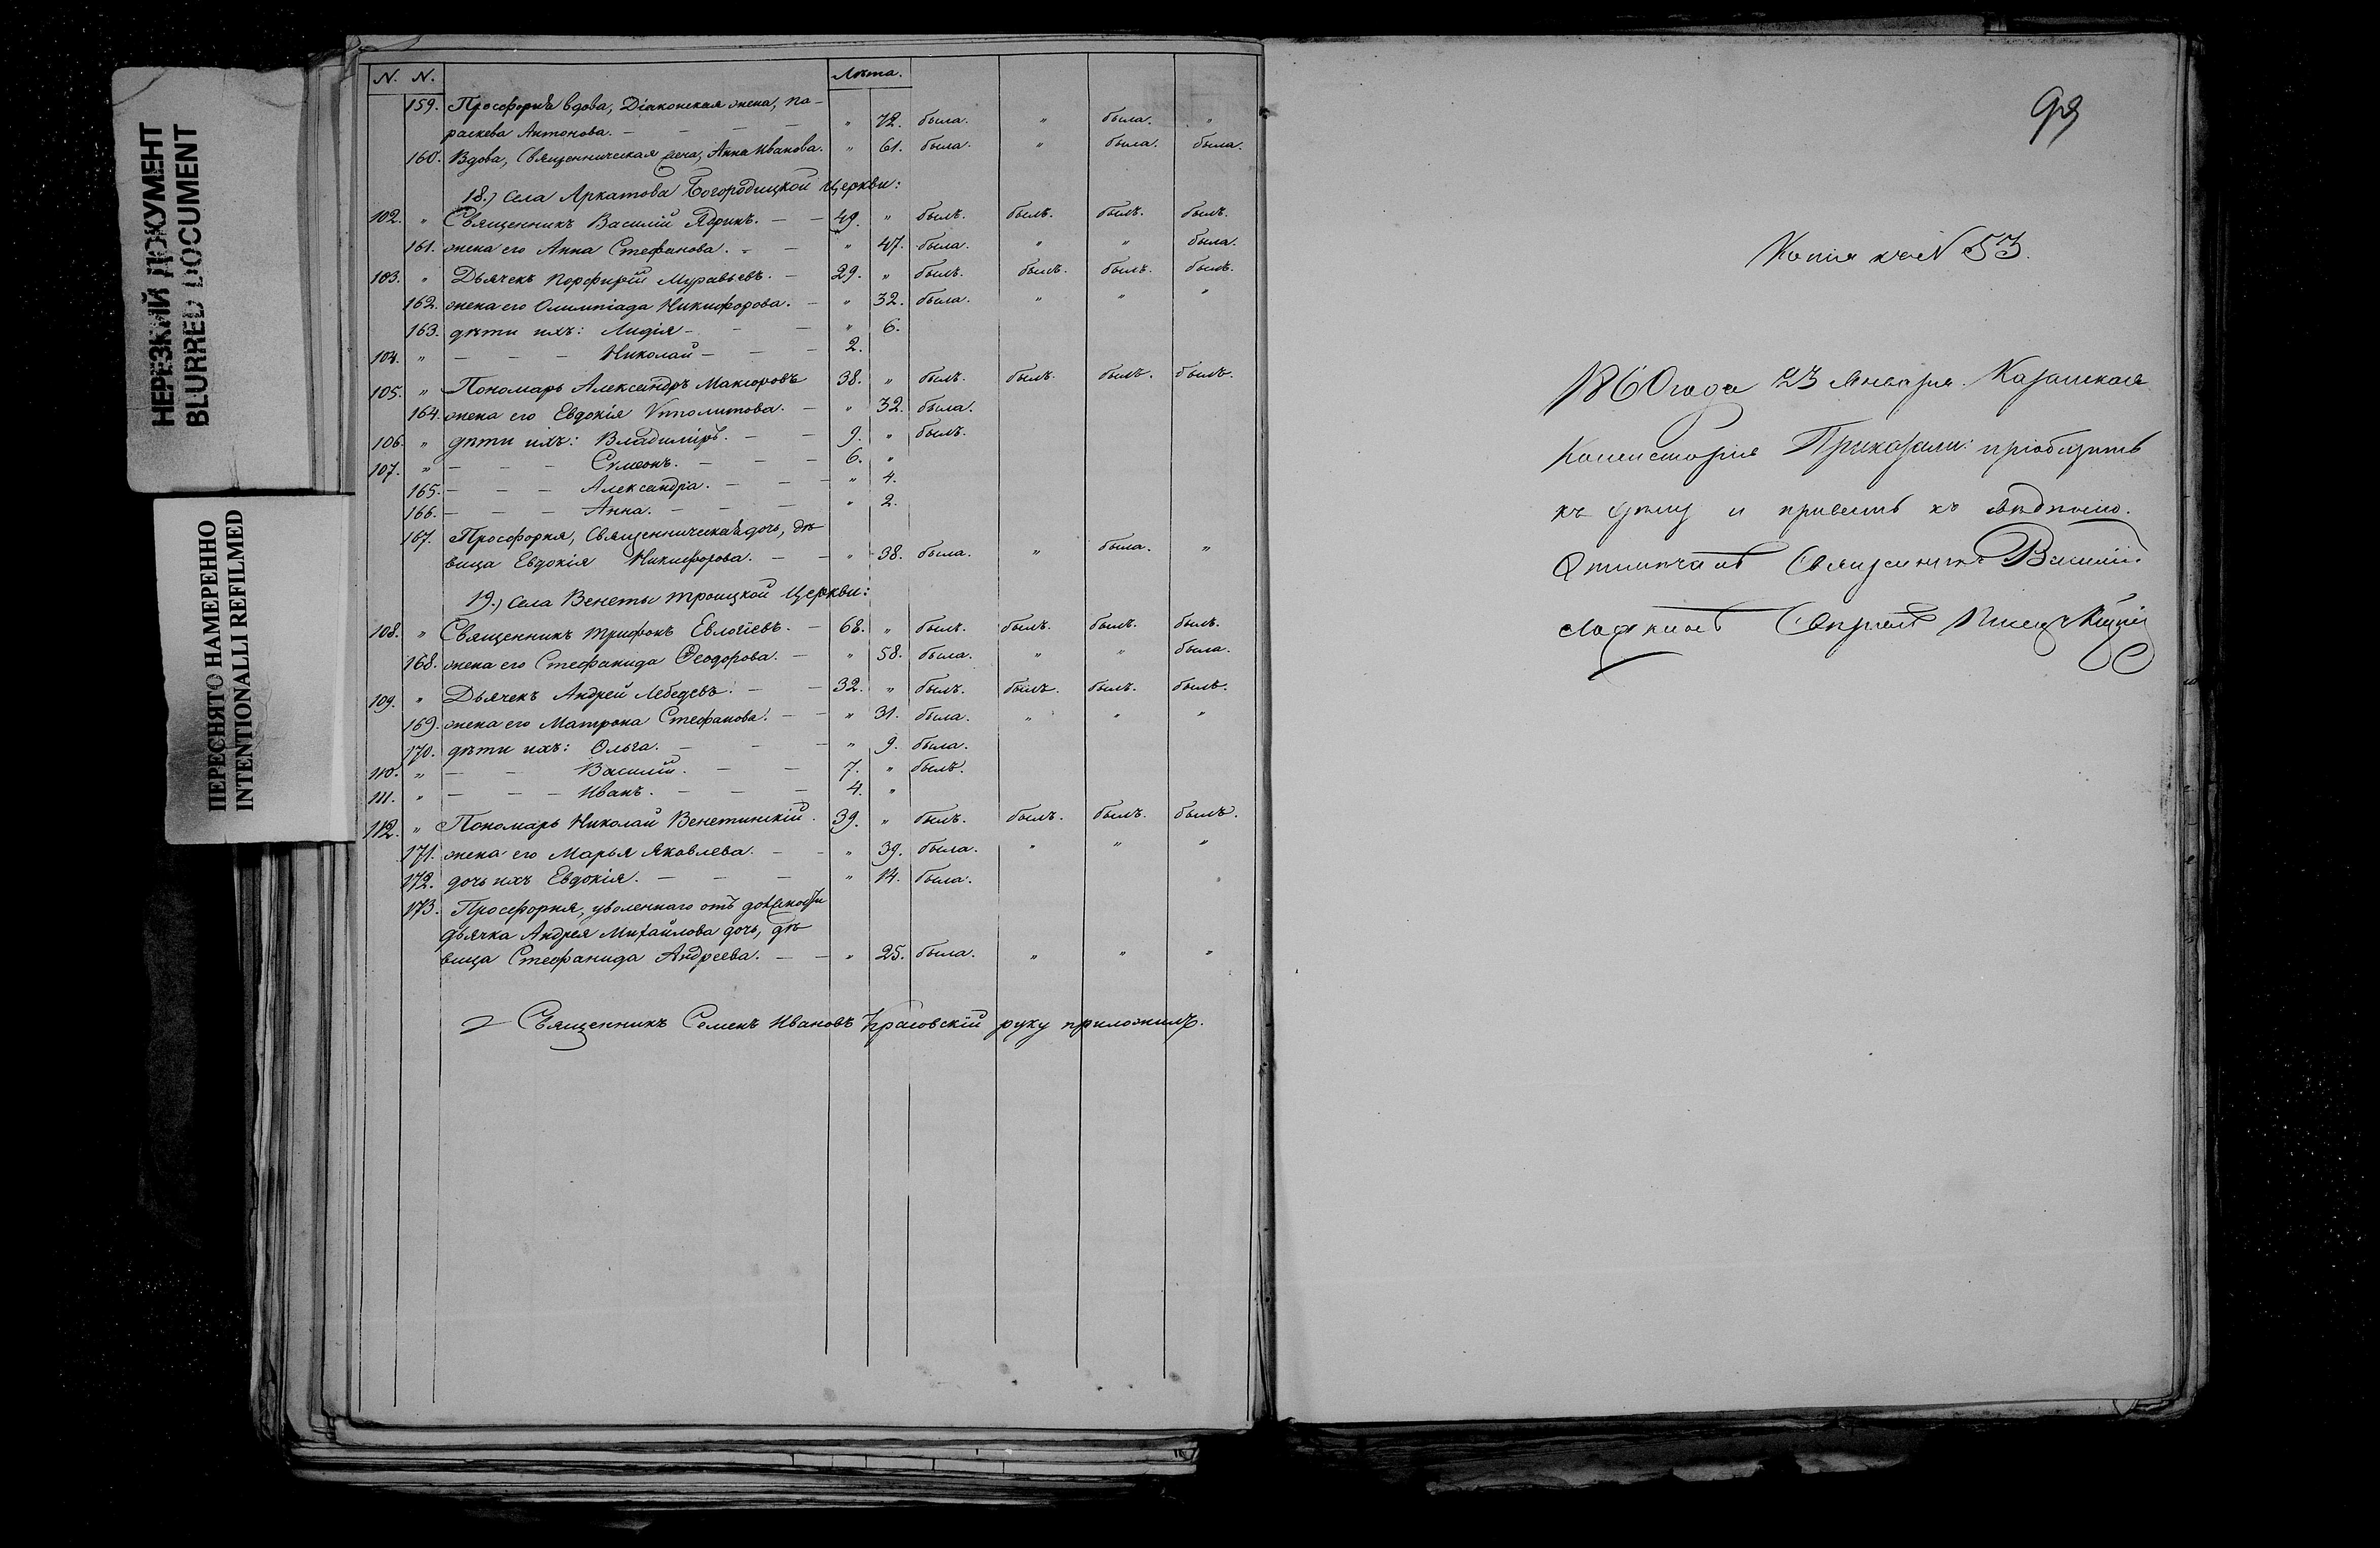 НЕРЕЗКИЙ ДОКУМЕНТ
BLURRED DOCUMENT
ПЕРЕСНЯТО НАМЕРЕННО
INTENTIONALLI REFILMED
N. N. Лѣта.
159. Просфорня вдова, Діаконская жена, Па-
раскева Антонова. — — — — „ 72. была. „ была. „
160. Вдова, Священническая жена, Анна Иванова. „ 61. была. „ была. была.
18.) Села Аркатова Богородицкой Церкви:
102. „ Священникъ Василій Ядринъ. — — 49. „ былъ. былъ. былъ. былъ.
161. жена его Анна Стефанова. — — „ 47. была. „ „ была.
103. „ Дьячекъ Порфирій Муравьевъ. — 29. „ былъ. былъ. былъ. былъ.
162. жена его Олимпіада Никифорова. — „ 32. была. „ „ „
163. дѣти ихъ: Лидія — — — „ 6.
104. „ — — — Николай — — — 2.
105. „ Пономарь Александръ Мансоровъ 38. „ былъ. былъ. былъ. былъ.
164. жена его Евдокія Ипполитова. — „ 32. была.
106. „ дѣти ихъ: Владиміръ. — — 9. „ былъ.
107. „ — — — Сѵмеонъ. — — — 6. „
165. — — — Александра. — — — „ 4.
166. — — — Анна. — — — „ 2.
167. Просфорня, Священническая дочь, дѣ
вица Евдокія Никифорова. — — „ 38. была. „ была. „
19.) Села Венеты Троицкой Церкви:
108. „ Священникъ Трифонъ Евлогіевъ. — 68. „ былъ. былъ. былъ. былъ.
168. жена его Стефанида Ѳеодорова. — „ 58. была. „ „ была.
109. „ Дьячекъ Андрей Лебедевъ. — — 32. „ былъ. былъ. былъ. былъ.
169. жена его Матрона Стефанова. — — „ 31. была. „ „ „
170. дѣти ихъ: Ольга. — — — „ 9. была.
110. „ — — Василій. — — 7. „ былъ.
111. „ — — — Иванъ. — — — 4. „
112. „ Пономарь Николай Венетинскій. 39. „ былъ. былъ. былъ. былъ.
171. жена его Марья Яковлева. — — „ 39. была. „ „ „
172. дочь ихъ Евдокія. — — — „ 14. была.
173. Просфорня, уволеннаго отъ должности
дьячка Андрея Михайлова дочь, дѣ
вица Стефанида Андреева. — — „ 25. была. „ „ „
Священникъ Семенъ Ивановъ Красовскій руку приложилъ.
Копія къ N 53.
1860 года 23 Января. Казанская
Консисторія Приказали: пріобщить
къ дѣлу и привесть къ
Священникъ Василій